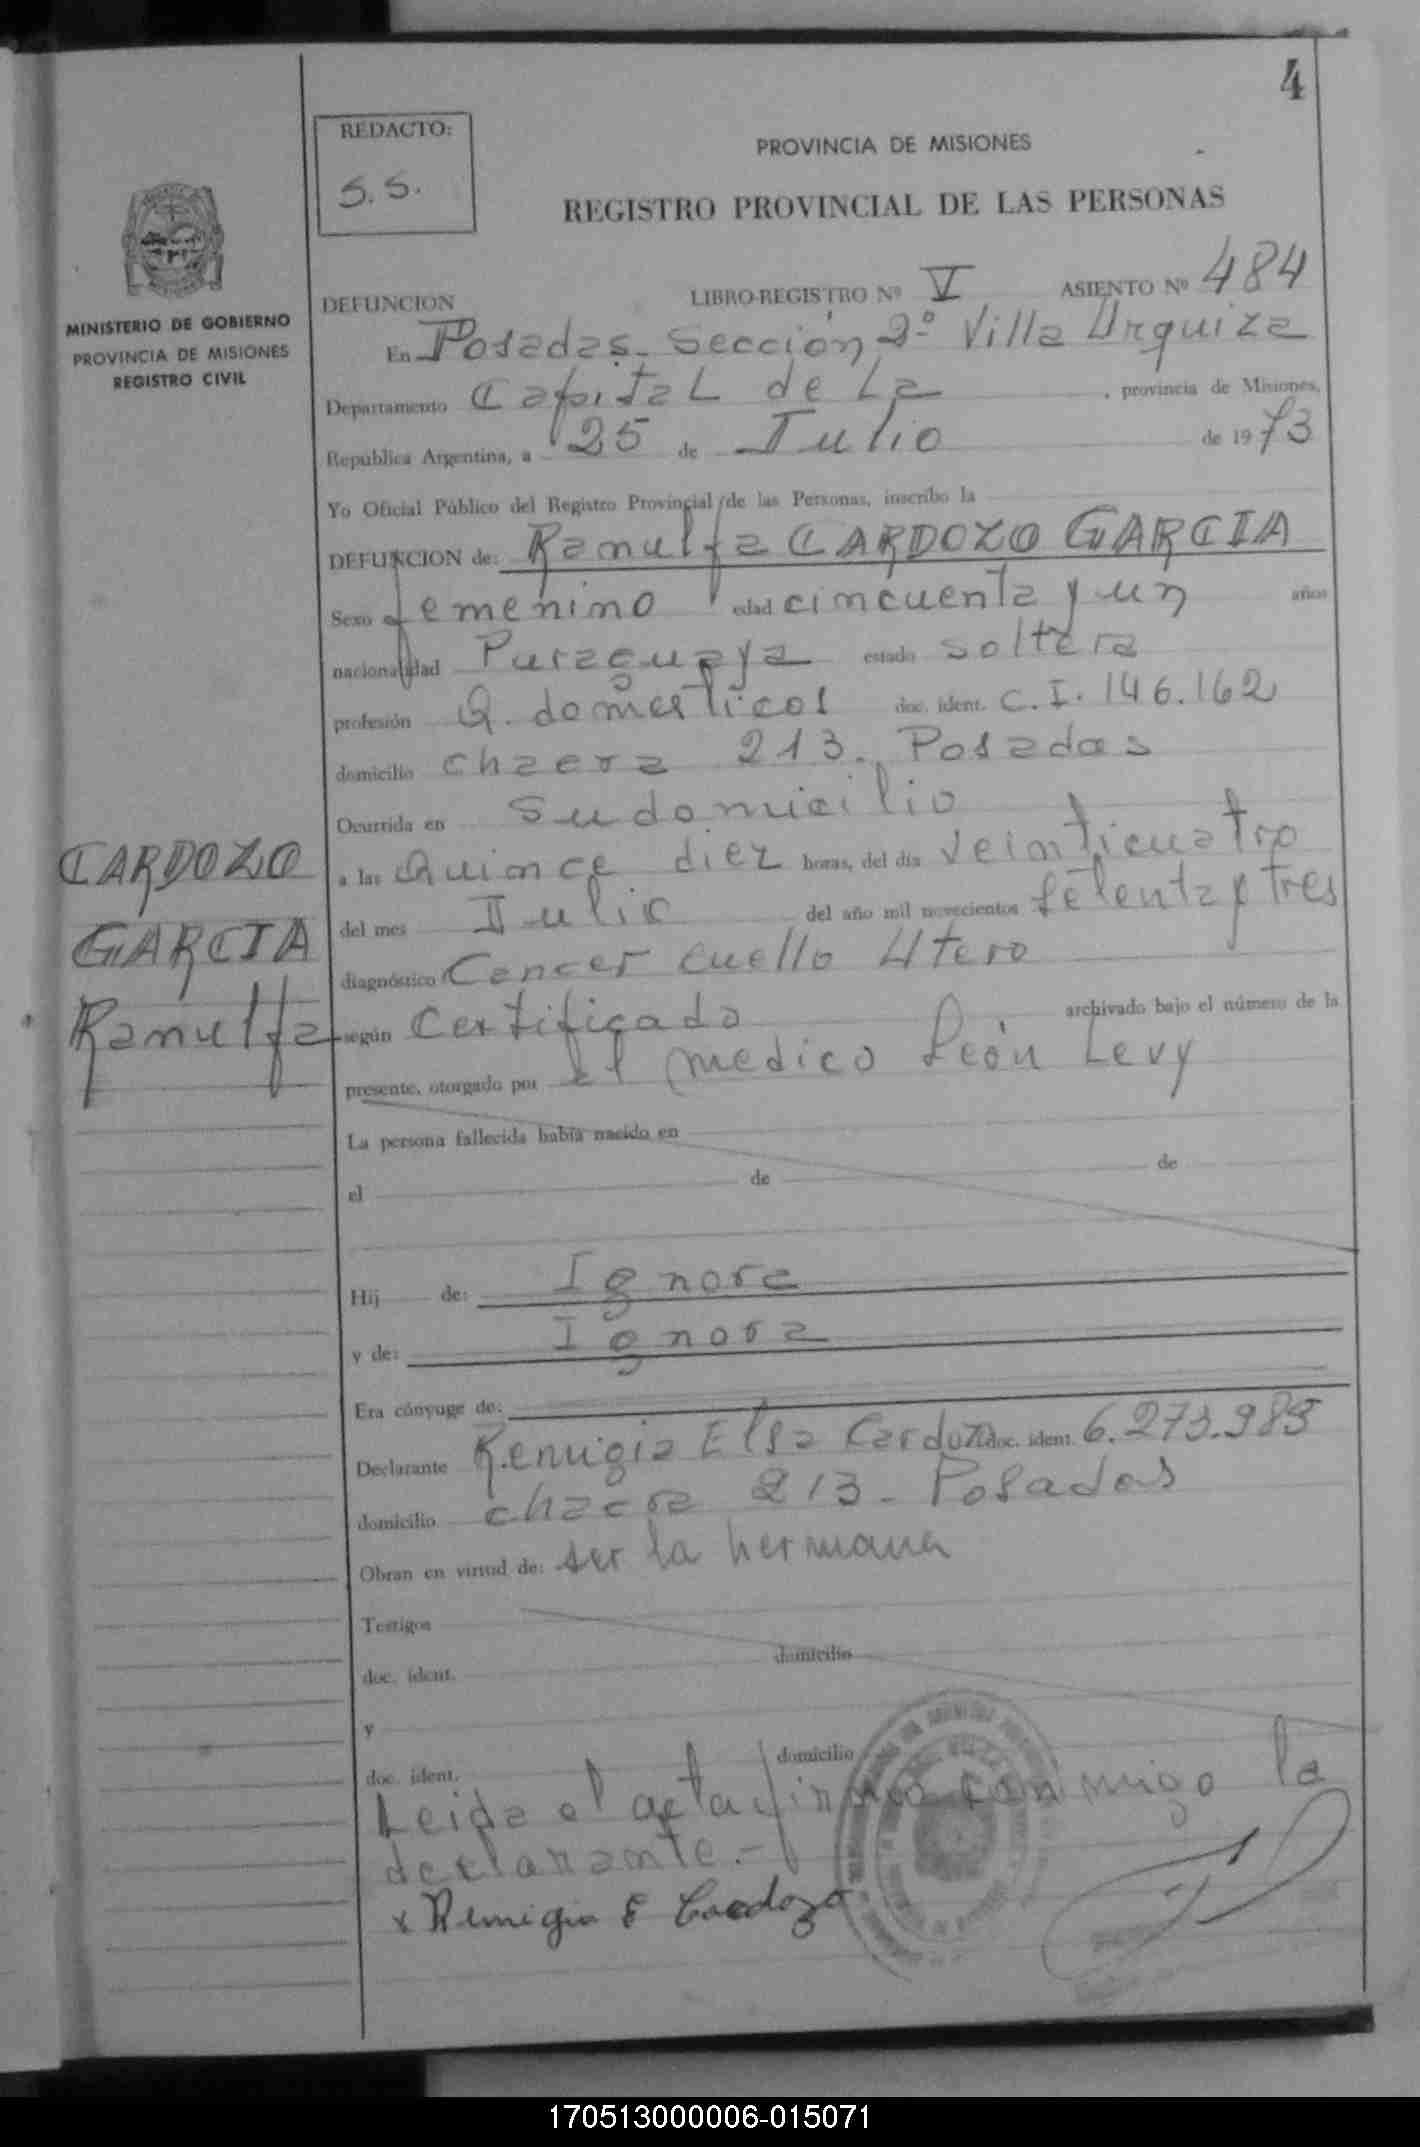 4
REDACTO:
S.S.
PROVINCIA DE MISIONES
REGISTRO PROVINCIAL DE LAS PERSONAS
MINISTERIO DE GOBIERNO
PROVINCIA DE MISIONES
REGISTRO CIVIL
DEFUNCION LIBRO-REGISTRO Nº V ASIENTO Nº 484
En Posadas. Sección 2º Villa Urquiza
Departamento Capital de La , provincia de Misiones,
Republica Argentina, a 25 de Julio de 1973
Yo Oficial Público del Registro Provincial de las Personas, inscribo la
DEFUNCION de: Ranulfa CARDOZO GARCIA
Sexo femenino edad cincuenta y un años
nacionalidad Puraguaya estado soltera
profesión Q. domésticos doc. ident. C.I. 146.162
domicilio chacra 213. Posadas
Ocurrida en su domicilio
a las Quince diez horas, del día veinticuatro
del mes Julio del año mil novecientos setenta y tres
diagnóstico Cancer cuello Utero
según Certificado archivado bajo el número de la
presente, otorgado por el medico León Levy
CARDOZO
GARCIA
Ranulfa
La persona fallecida había nacido en
el de de
Hij de: Ignora
y de: Ignora
Era cónyuge de:
Declarante Remigia Elsa Cardozo doc. ident. 6.273.983
domicilio chacra 213 - Posadas
Obran en virtud de: ser la hermana
Testigos
doc. ident. domicilio
y
doc. ident. domicilio
Leida el acta firma conmigo la
declarante.-
x Remigia E Cardozo
170513000006-015071